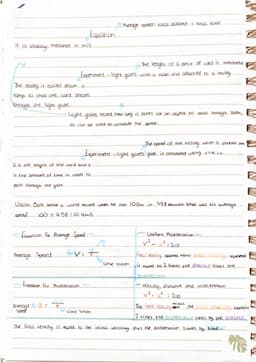 Average speed: total distance ÷ total time
Equation
It is usually measured in m/s
The length of a piece of card is measured
Experiment - light gates with a ruler and attached to a trolley.
The trolley is rolled down a
ramp so that the card breaks
through the light gate.
Light gates record how long it takes for an object to pass through them,
so can be used to calculate the speed.
The speed of the trolley which is
Experiment - light gates is calculated using
is the length of the card and s
is the amount of time it takes to
pass through the gate.
Usain Bolt broke a world record when he ran 100m in 9.58 seconds. What was his average
speed. 100 ÷ 9.58 = 10.4m/s
Equation for Average Speed
Uniform Acceleration
v² - u² = 2as
Average Speed
time taken
Final velocity squared minus initial velocity squared
is equal to 2 times the distance times the
acceleration
Equation for Acceleration
Velocity, distance and acceleration
v² - u² = 2as
Average
Speed
time taken
The final velocity
2 times the acceleration times by the distance.
The final velocity is equal to the initial velocity plus the acceleration times by time